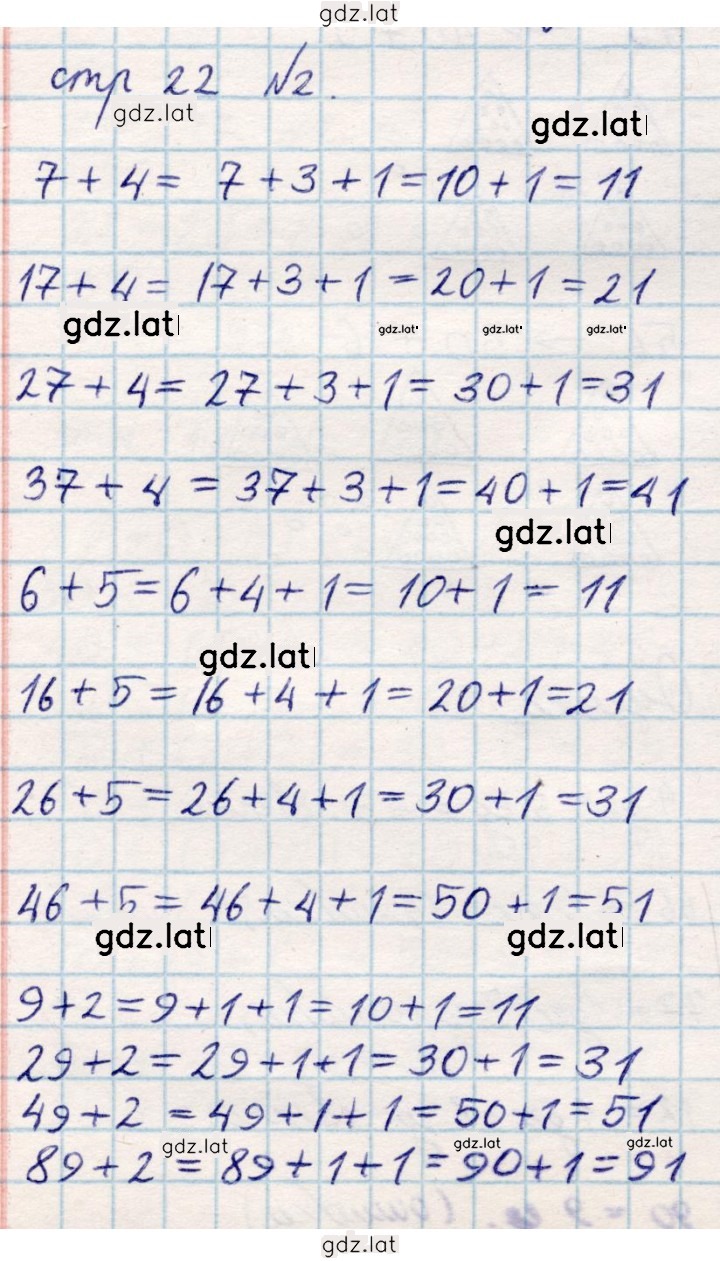 gdz.lat
стр 22 №2.
gdz.lat
gdz.lat
7 + 4 = 7 + 3 + 1 = 10 + 1 = 11
17 + 4 = 17 + 3 + 1 = 20 + 1 = 21
gdz.lat gdz.lat gdz.lat gdz.lat
27 + 4 = 27 + 3 + 1 = 30 + 1 = 31
37 + 4 = 37 + 3 + 1 = 40 + 1 = 41
gdz.lat
6 + 5 = 6 + 4 + 1 = 10 + 1 = 11
gdz.lat
16 + 5 = 16 + 4 + 1 = 20 + 1 = 21
26 + 5 = 26 + 4 + 1 = 30 + 1 = 31
46 + 5 = 46 + 4 + 1 = 50 + 1 = 51
gdz.lat gdz.lat
9 + 2 = 9 + 1 + 1 = 10 + 1 = 11
29 + 2 = 29 + 1 + 1 = 30 + 1 = 31
49 + 2 = 49 + 1 + 1 = 50 + 1 = 51
gdz.lat gdz.lat gdz.lat
89 + 2 = 89 + 1 + 1 = 90 + 1 = 91
gdz.lat